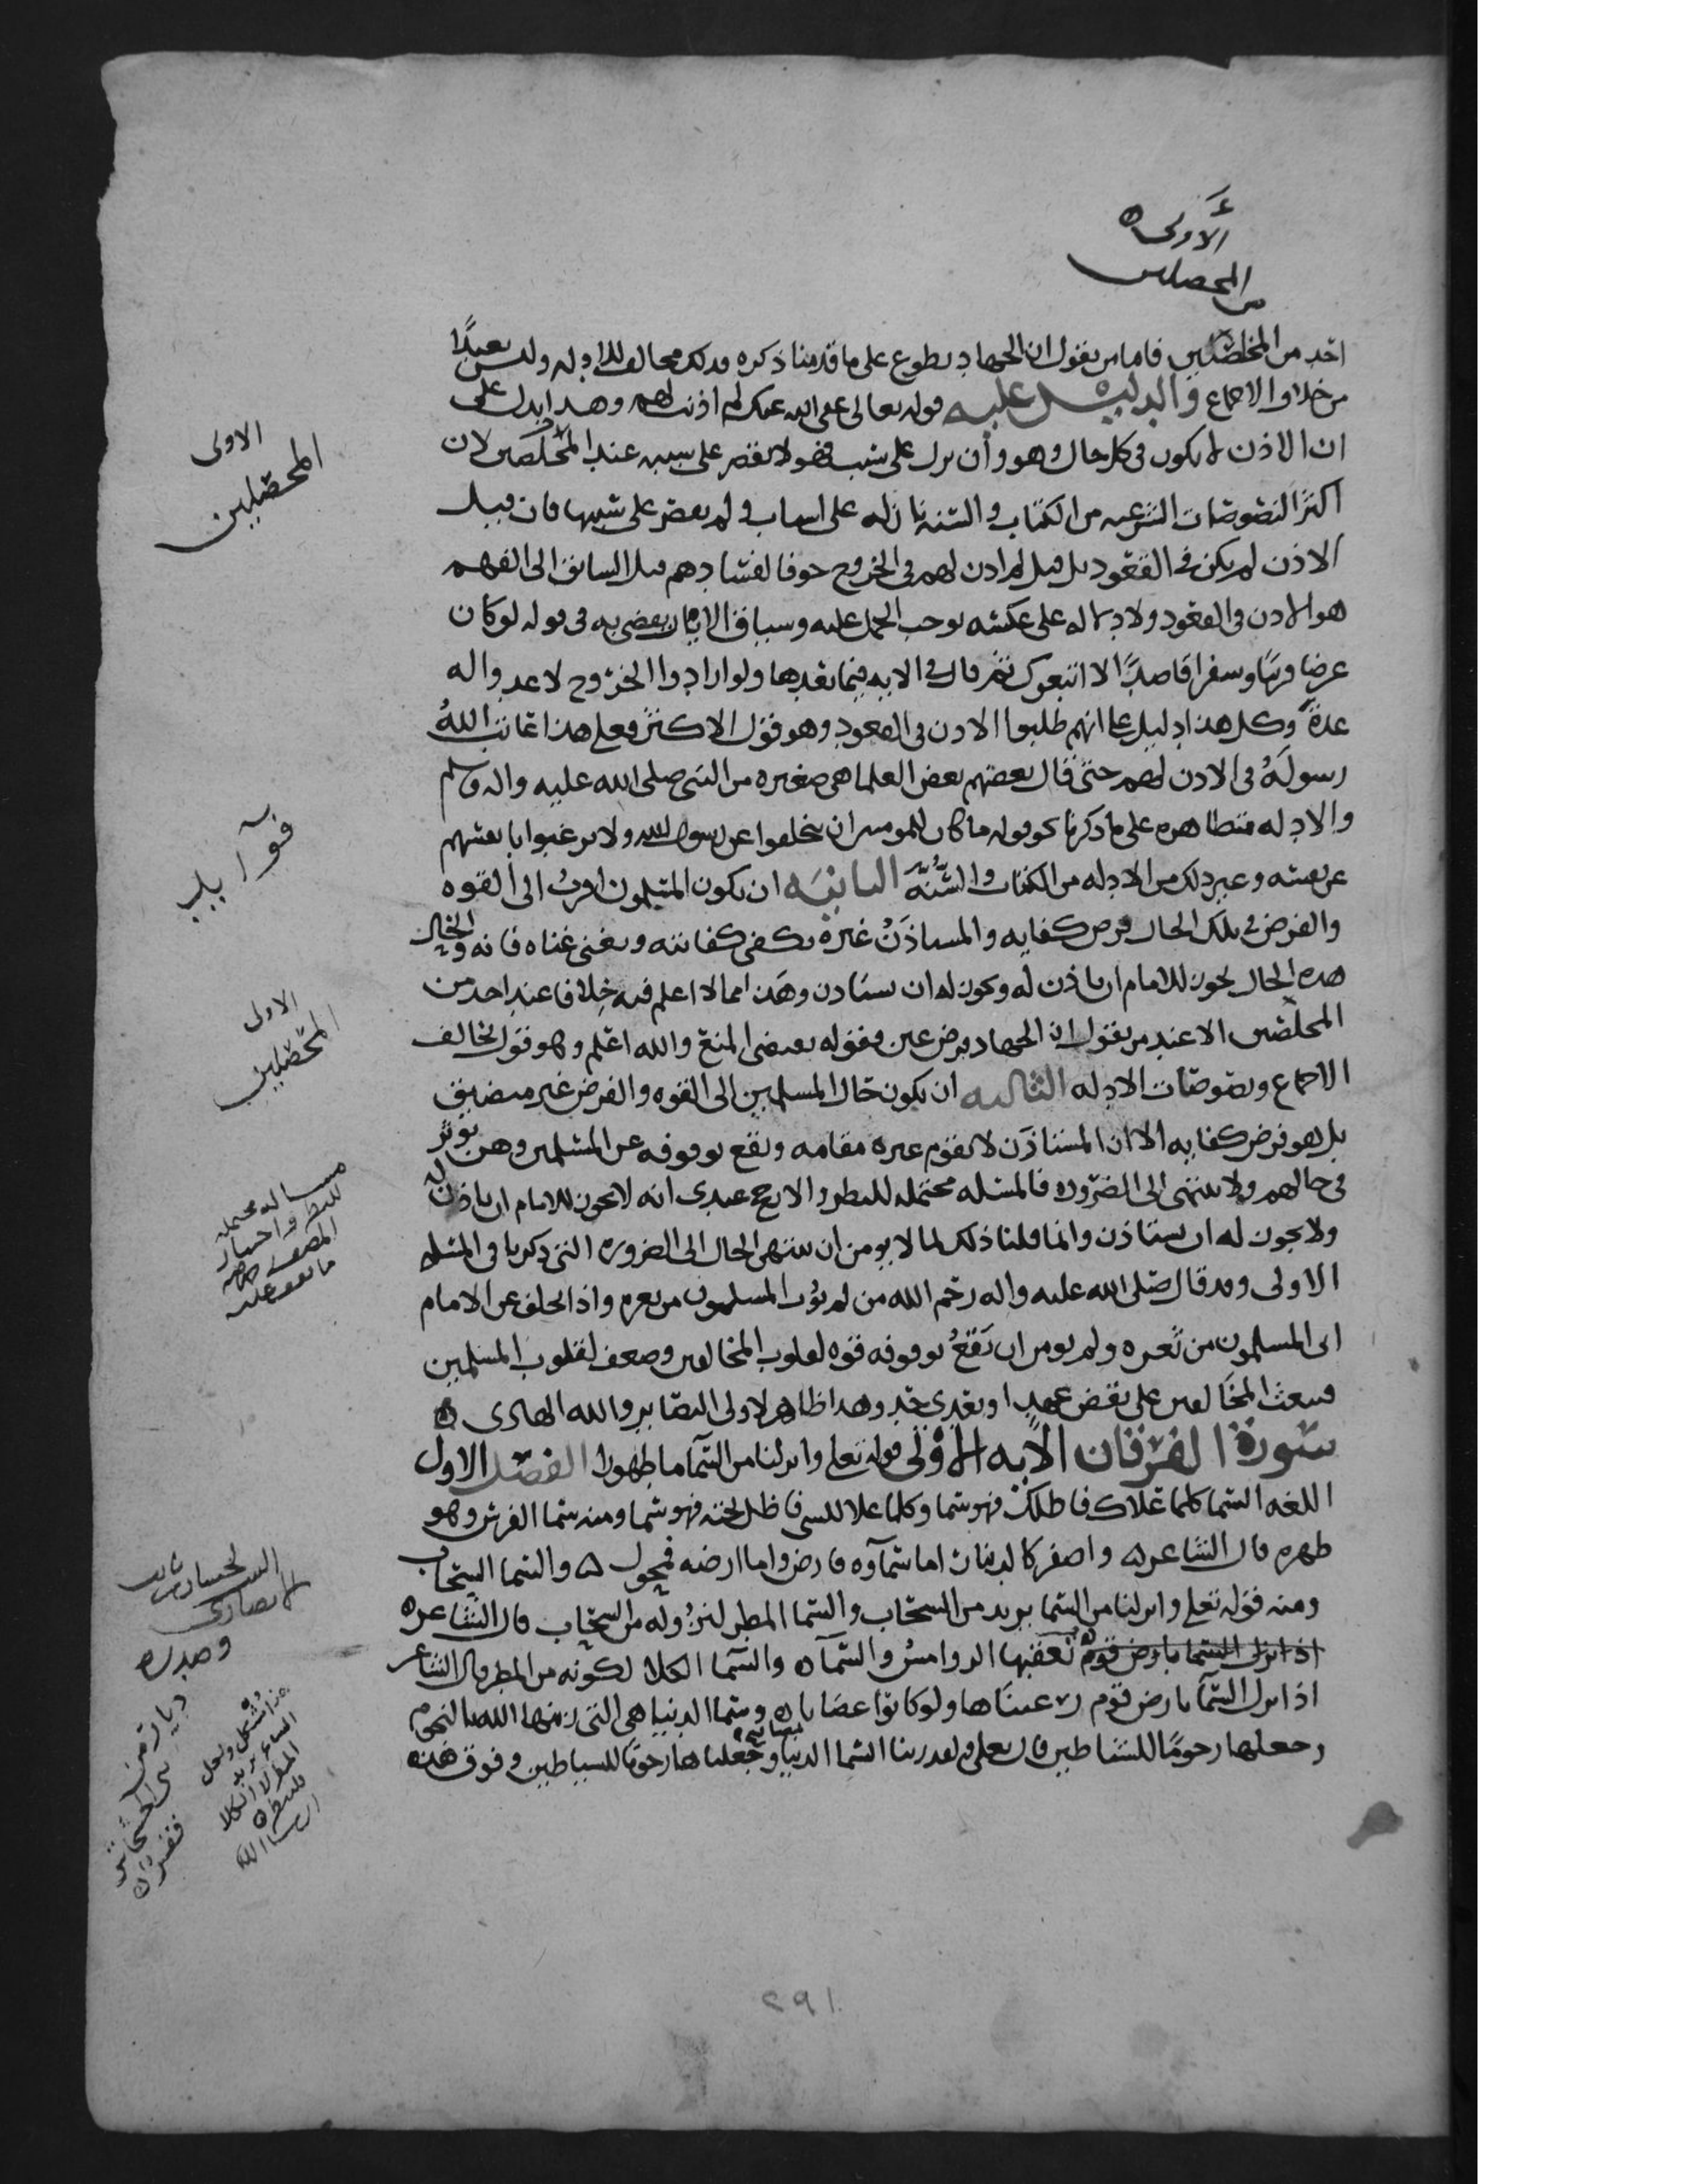 الأولى
المحصلين
احد من المخلصين فاما من يقول ان الجهاد تطوع على ما قدمنا ذكره فذلك مخالف للادله وليس بعيدًا
من خلاف الاجماع والدليل عليه قوله تعالى عفى الله عنك لم اذنت لهم وهذا يدل على
ان الاذن لا يكون في كل حال وهو وان نزل على سبب فهو لا يقصر على سببه عند المخلصين لان
اكثر النصوصات الشرعيه من الكتاب والسنه نازله على اسباب ولم يقصر على سببها فان قيل
الاذن لم يكن في القعود بل قيل لم اذن لهم في الخروج خوفا لفسادهم قيل السابق الى الفهم
هو الاذن في القعود ولا دلاله على عكسه توجب الحمل عليه وسياق الايات يقضي به في قوله لو كان
عرضا قريبا وسفرا قاصدًا لا اتبعوك ثم قال في الايه فيما بعدها ولو ارادوا الخروج لاعدوا له
عدةً وكل هذا دليل على انهم طلبوا الاذن في القعود وهو قول الاكثر فعلى هذا عاتب اللهُ
رسولَهُ في الاذن لهم حتى قال بعضهم بعض العلما هي صغيره من النبي صلى الله عليه واله وسلم
والادله متظاهره على ما ذكرنا نحو قوله ما كان للمومنين ان يتخلفوا عن رسول الله ولا يرغبوا بانفسهم
عن نفسه وغير ذلك من الادله من الكتاب والسُّنَّه الثانيه ان يكون المسلمون اقربُ الى القوه
والفرض في تلك الحال فرض كفايه والمستاذَنُ غيره يكفي كفايته ويغني غناه فانه والحال
هذه الحال يجوز للامام ان ياذن له ويجوز له ان يستاذن وهذا مما لا اعلم فيه خلافا عند احد من
المحلصين الا عند من يقول ان الجهاد فرض عين فقوله يقتضي المنع والله اعلم وهو قول يخالف
الاجماع ونصوصات الادله الثالثه ان يكون حال المسلمين الى القوه والفرض غير متضيق
بل هو فرض كفايه الا ان المستاذن لا يقوم غيره مقامه ويقع بوقوفه عن المسلمين وهن يوثر
في حالهم ولا ينتهي الى الضروره فالمسئله محتمله للنظر والارجح عندي انه لا يجوز للامام ان ياذن له
ولا يجوز له ان يستاذن وانما قلنا ذلك لما لا يومن ان ينتهي الحال الى الضروره التي ذكرنا في المسئله
الاولى وقد قال صلى الله عليه واله رحم الله من لم يؤت المسلمون من ثغره واذا تخلف عن الامام
اتى المسلمون من ثغره ولم يومن ان يَقَعُ بوقوفه قوه لقلوب المخالفين وضعف لقلوب المسلمين
فيبعث المخالفين على نقض عهد او تعدي حد وهذا ظاهر لاولى البصاير والله الهادي
سورة الفرقان الايه الاولى قوله تعلى وانزلنا من السما ما طهورا الفصل الاول
اللغه السما كلما علاك فاظلك فهو سما وكلما علا للشي فاظل تحته فهو سما ومنه سما الفرس وهو
ظهره قال الشاعر واصفر كالدينار اما سماوه فارض واما ارضه فمحول والسما السحاب
ومنه قوله تعلى وانزلنا من السما يريد من السحاب والسما المطر لنزُوله من السحاب قال الشاعر
اذا نزل السما بارض قوم تعفيها الروامسُ والسماُ والسما الكلا لكونه من المطر قال الشاعر
اذا نزل السما بارض قوم رعيناها ولو كانوا غضابا وسما الدنيا هي التي زينها الله بالنجوم
وجعلها رجومًا للشياطين قال تعلى ولقد زينا السما الدنيا بمصابيح وجعلناها رجوما للشياطين وفوق هذه
الاولى
المحصلين
فوآ بلب
الاولى
المحصلين
مساله محتمله
للنظر واختيار
المصنف
ما يعقد عليه
البيت لحسان بن ثابت
الانصاري
وصدره
ديار من
بني الحسحاس
قفر
هذا مشكل ولعل
الشاعر يريد
المطر لا الكلا
فلينظر
ان شا الله
٢٩١